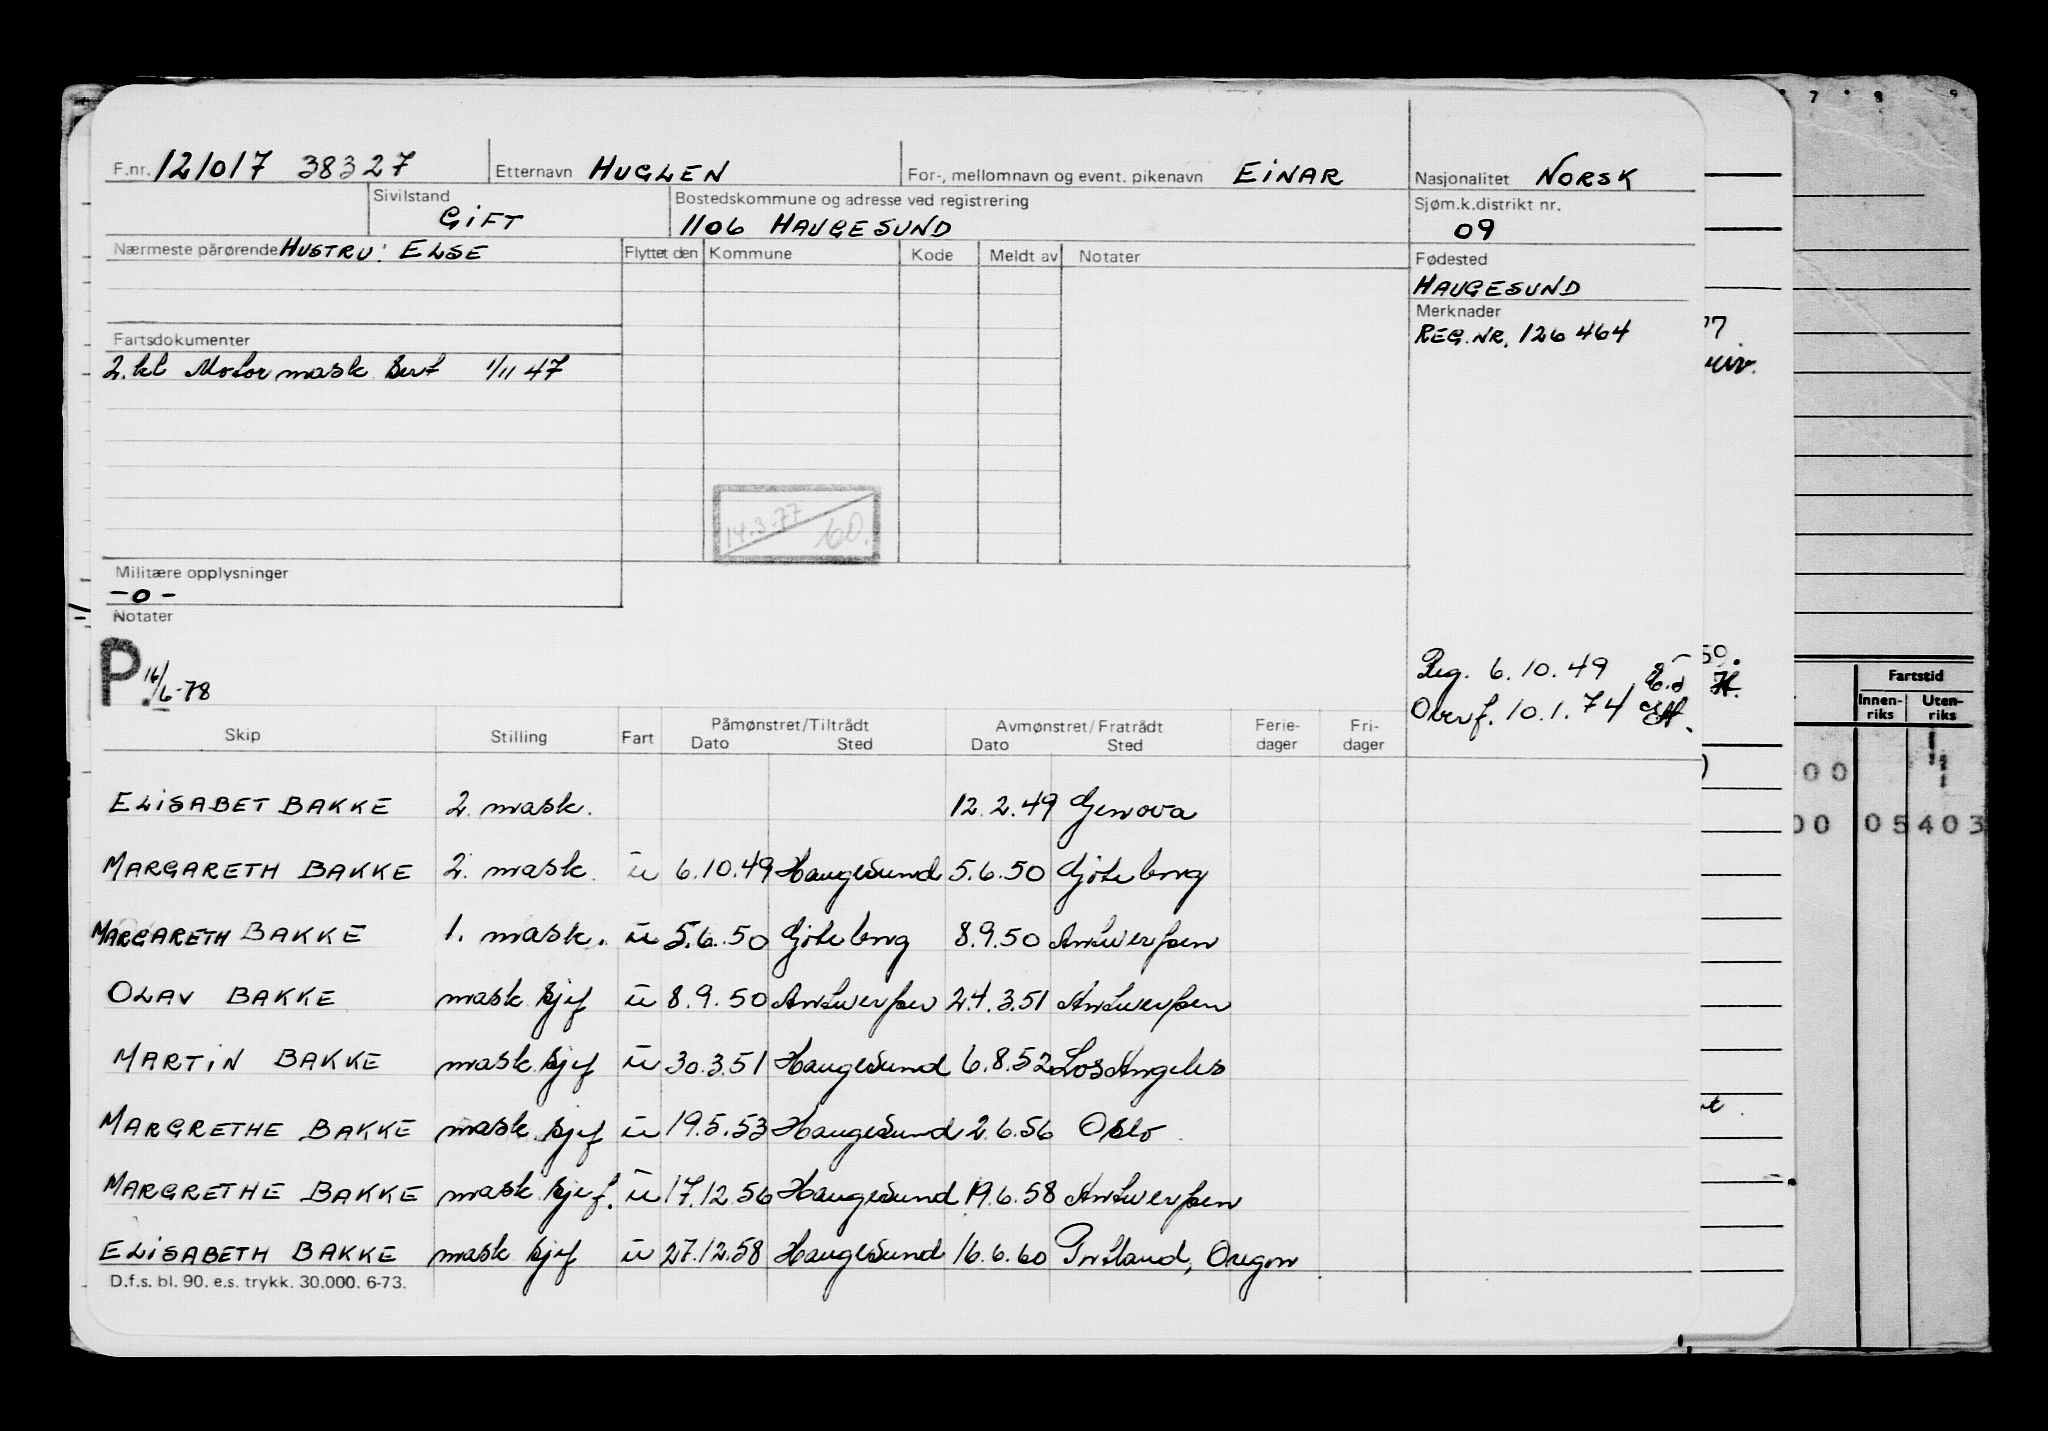 F.nr. 121017 38327 Etternavn HUGLEN For-, mellomnavn og event. pikenavn EINAR Nasjonalitet NORSK
Sivilstand GIFT Bostedskommune og adresse ved registrering 1106 HAUGESUND Sjøm.k.distrikt nr. 09
Nærmeste pårørende HUSTRU: ELSE Flyttet den Kommune Kode Meldt av Notater Fødested
HAUGESUND
Merknader
REG.NR. 126464
Fartsdokumenter
2.kl Motormask Sert 1/11 47
14.3.77 60.
Militære opplysninger
-0-
Notater
P. 16/6-78
Reg. 6.10.49
Overf. 10.1.74
Skip Stilling Fart Påmønstret/Tiltrådt Dato Sted Avmønstret/Fratrådt Dato Sted Ferie-dager Fri-dager
ELISABET BAKKE 2. mask. 12.2.49 Genova
MARGARETH BAKKE 2. mask. u 6.10.49 Haugesund 5.6.50 Göteborg
MARGARETH BAKKE 1. mask. u 5.6.50 Göteborg 8.9.50 Antwerpen
OLAV BAKKE mask sjef u 8.9.50 Antwerpen 24.3.51 Antwerpen
MARTIN BAKKE mask.sjef u 30.3.51 Haugesund 6.8.52 Los Angeles
MARGRETHE BAKKE mask.sjef u 19.5.53 Haugesund 2.6.56 Oslo
MARGRETHE BAKKE mask.sjef. u 17.12.56 Haugesund 19.6.58 Antwerpen
ELISABETH BAKKE mask sjef u 27.12.58 Haugesund 16.6.60 Portland, Oregon
D.f.s. bl. 90. e.s. trykk. 30.000. 6-73.
7 8 9
Fartstid
Innen-riks Uten-riks
00
00 05403